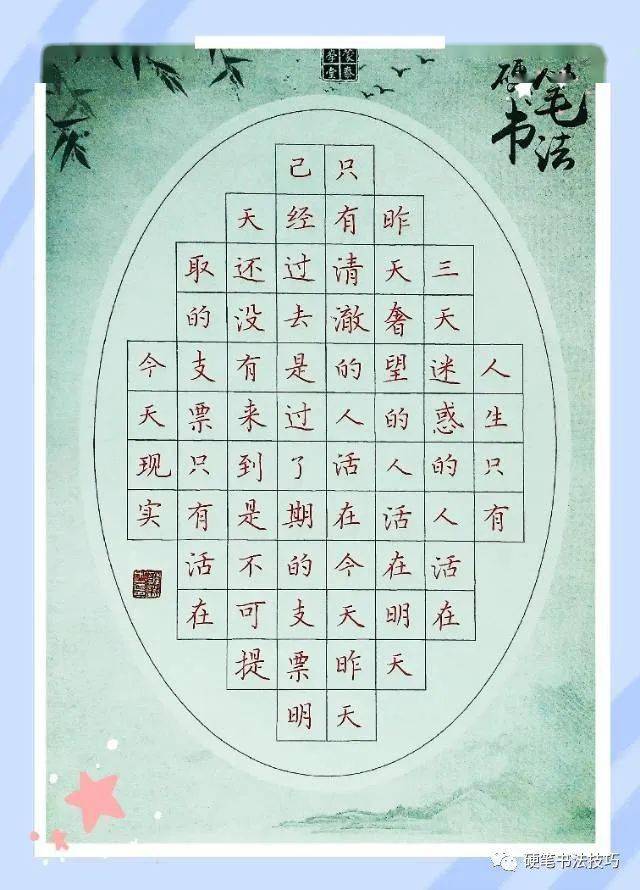 硬笔书法
人生只有
三天迷惑的人活在
昨天奢望的人活在明天
只有清澈的人活在今天昨天
己经过去是过了期的支票明
天还没有来到是不可提
取的支票只有活在
今天现实
硬笔书法技巧